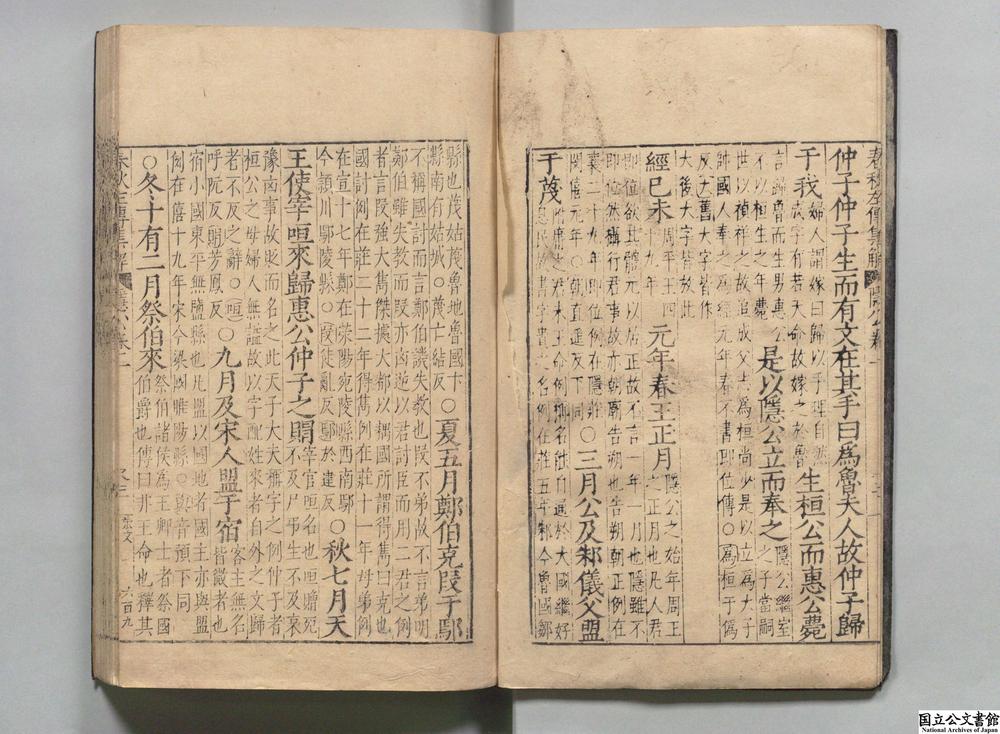 仲子仲子生而有文在其手曰爲魯夫人故仲子歸
于我
婦人謂嫁曰歸以手理自然
成字有若天命故嫁之於魯
生桓公而惠公薨
言歸魯而生男惠公
不以桓生之年薨
是以隱公立而奉之
隱公繼室
之子當嗣
世以禎祥之故追成父志爲桓尚少是以立爲大子
帥國人奉之爲經元年春不書即位傳○爲桓于僞
反大舊大字皆作
大後大字皆放此
經己未
周平王四
十九年
元年春王正月
隱公之始年周王
之正月也凡人君
即位欲其體元以居正故不言一年一月也隱雖不
即位然攝行君事故亦朝廟告朔也告朔朝正例在
襄二十九年即位例在隱莊
閔僖元年○
○三月公及邾儀父盟
于蔑
附庸之君未王命例稱名能自通於大國繼好
息民故書字貴之名例在莊五年邾今魯國鄒
縣也蔑姑蔑魯地魯國卞
縣南有姑城○蔑亡結反
○夏五月鄭伯克段于鄢
不稱國討而言鄭伯譏失教也段不弟故不言弟明
鄭伯雖失教而段亦凶逆以君討臣而用二君之例
者言段強大雋傑據大都以耦國所謂得雋曰克也
國討例在莊二十二年得雋例在莊十一年母弟例
在宣十七年鄭在滎陽宛陵縣西南鄢
今潁川鄢陵縣○段徒亂反鄢於建反
○秋七月天
王使宰咺來歸惠公仲子之賵
宰官咺名也咺贈死
不及尸弔生不及哀
豫凶事故貶而名之此天子大夫稱字之例仲子者
桓公之母婦人無謚故以字配姓來者自外之文歸
者不反之辭○咺
呼阮反賵芳鳳反
○九月及宋人盟于宿
客主無名
皆微者也
宿小國東平無鹽縣也凡盟以國地者國主亦與盟
例在僖十九年宋今梁國睢陽縣○與音預下同
○冬十有二月祭伯來
祭伯諸侯爲王卿士者祭國
伯爵也傳曰非王命也釋其
国立公文書館
National Archives of Japan